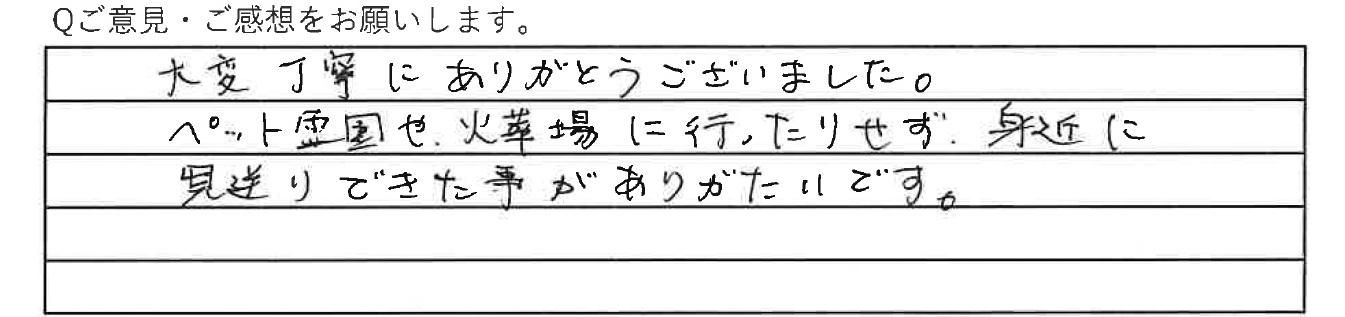 Qご意見・ご感想をお願いします。
大変丁寧にありがとうございました。
ペット霊園や、火葬場に行ったりせず、身近に
見送りできた事がありがたいです。